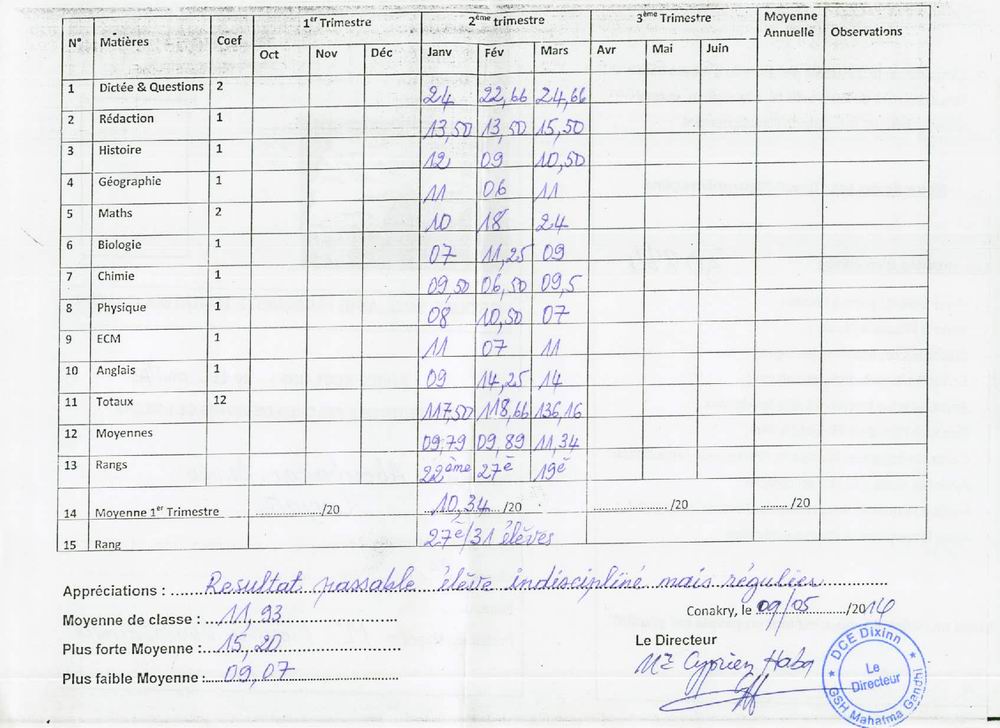 N° Matières Coef 1er Trimestre 2ème trimestre 3ème Trimestre Moyenne Annuelle Observations
Oct Nov Déc Janv Fév Mars Avr Mai Juin
1 Dictée & Questions 2 24 22,66 24,66
2 Rédaction 1 13,50 13,50 15,50
3 Histoire 1 12 09 10,50
4 Géographie 1 11 06 11
5 Maths 2 10 18 24
6 Biologie 1 07 11,25 09
7 Chimie 1 09,50 06,50 09,5
8 Physique 1 08 10,50 07
9 ECM 1 11 07 11
10 Anglais 1 09 14,25 14
11 Totaux 12 117,50 118,66 136,16
12 Moyennes 09,79 09,89 11,34
13 Rangs 22ème 27è 19è
14 Moyenne 1er Trimestre ............../20 10,34 /20 ............../20 ......../20
15 Rang 27è/31 élèves
Appréciations : Resultat passable élève indiscipliné mais régulier
Moyenne de classe : 11,93
Conakry, le 09/05 /2014
Plus forte Moyenne : 15,20
Le Directeur
Plus faible Moyenne : 09,07
Mr Cyprien Haba
DCE Dixinn
Le Directeur
GSH Mahatma Gandhi